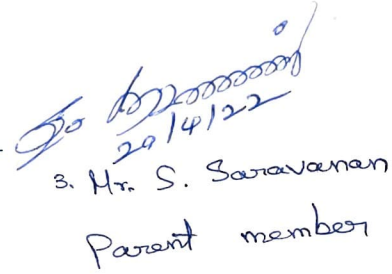 20/4/22
3. Mr. S. Saravanan
Parent member